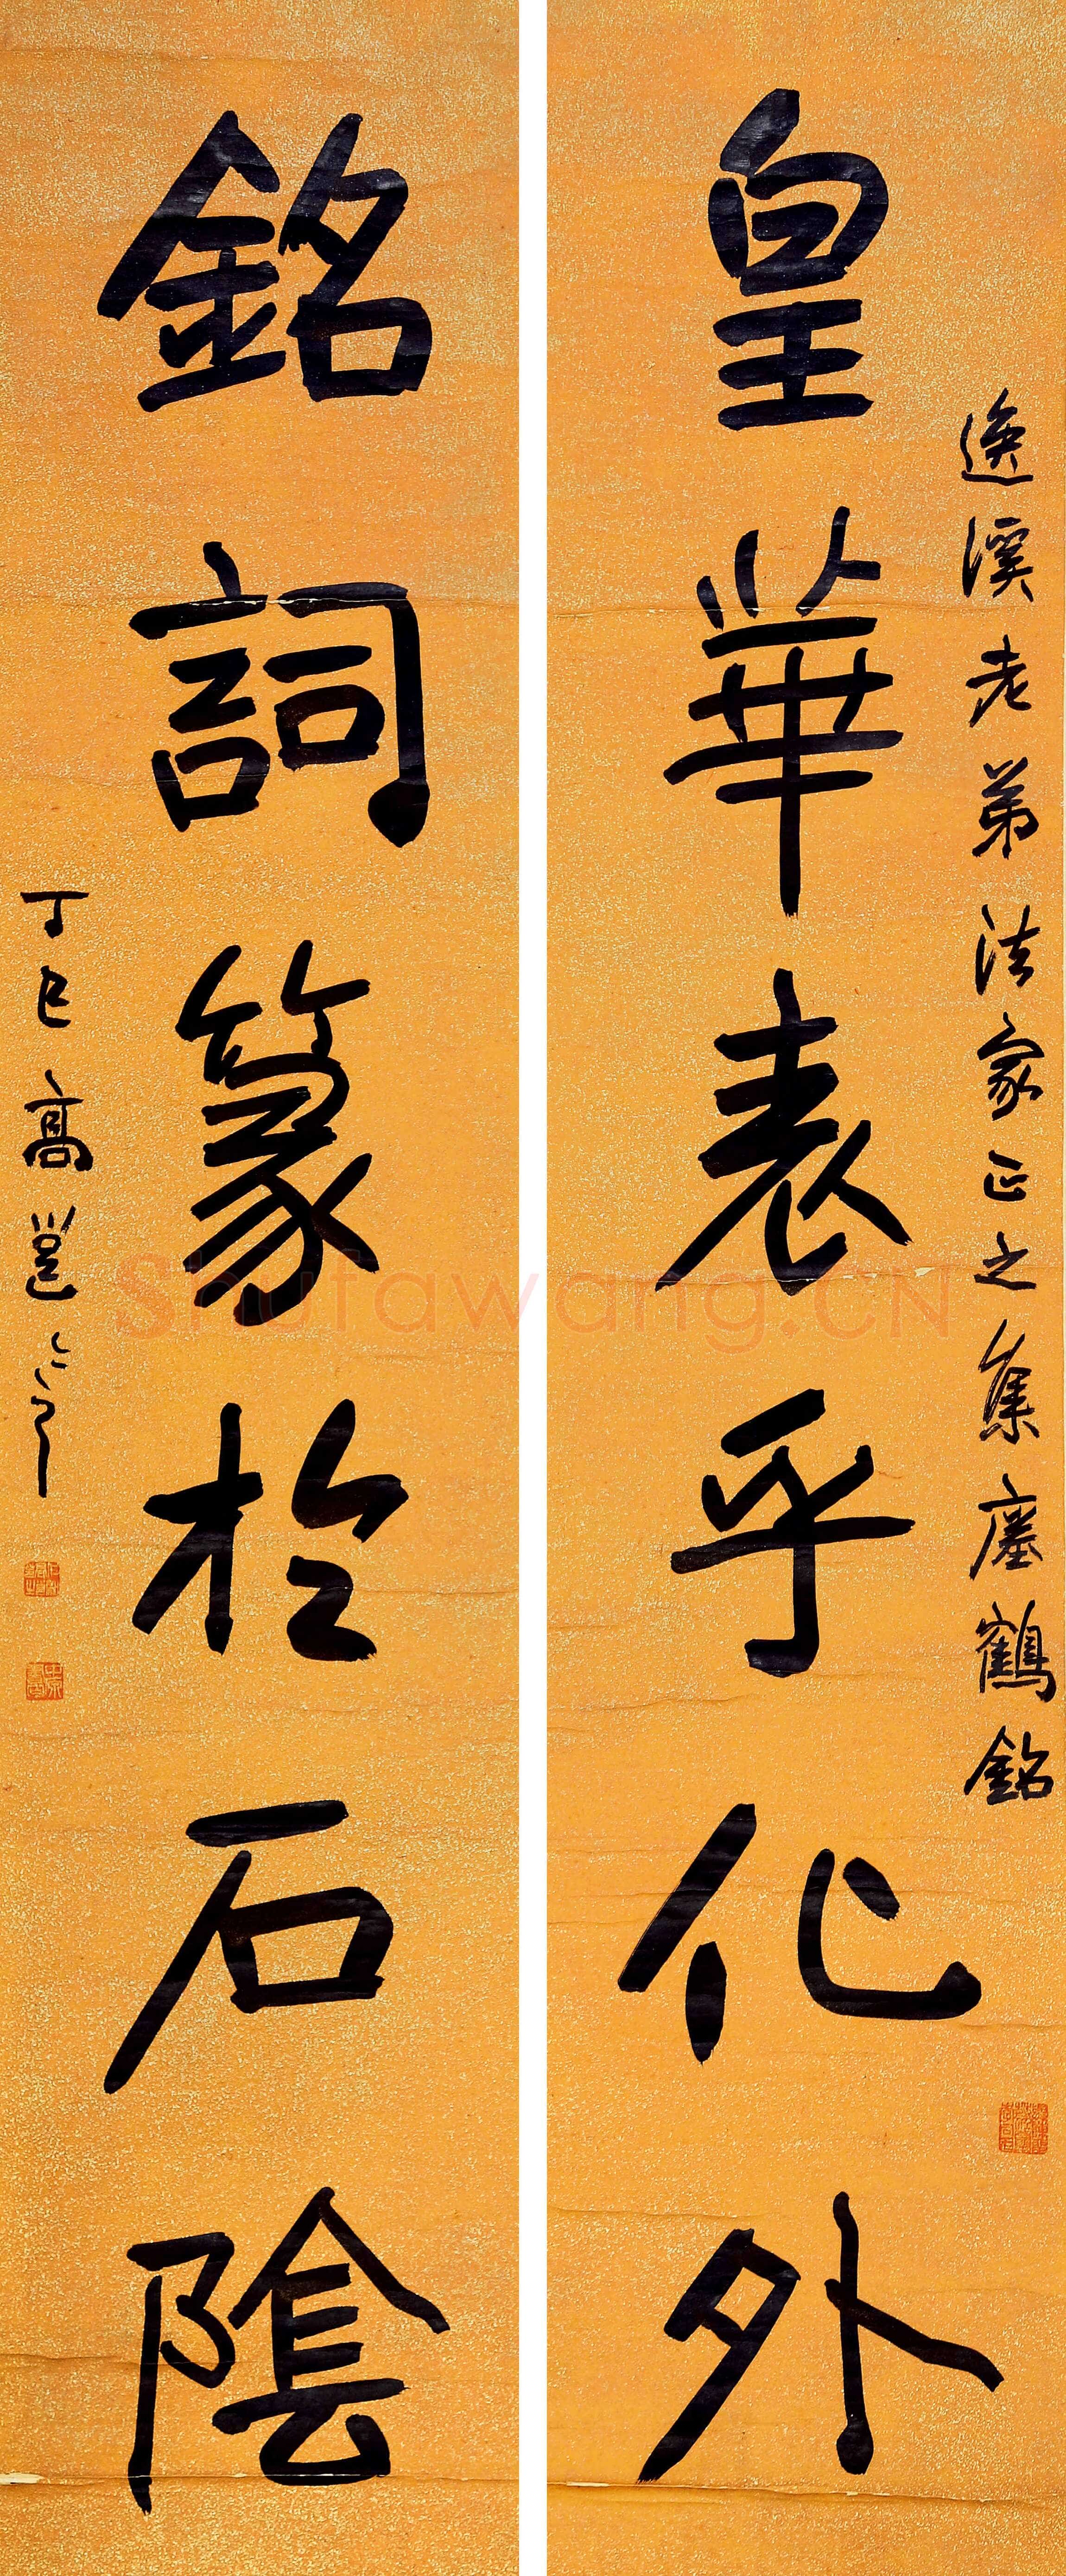 皇華表乎化外
溪老弟法家正之集瘞鶴銘
銘詞篆於石陰
丁巳高邕
Shufawang.CN